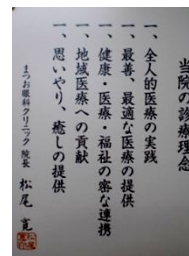 当院の診療理念
一、全人的医療の実践
一、最善、最適な医療の提供
一、健康・医療・福祉の密な連携
一、地域医療への貢献
一、思いやり、癒しの提供
まつお眼科クリニック 院長 松尾 寛